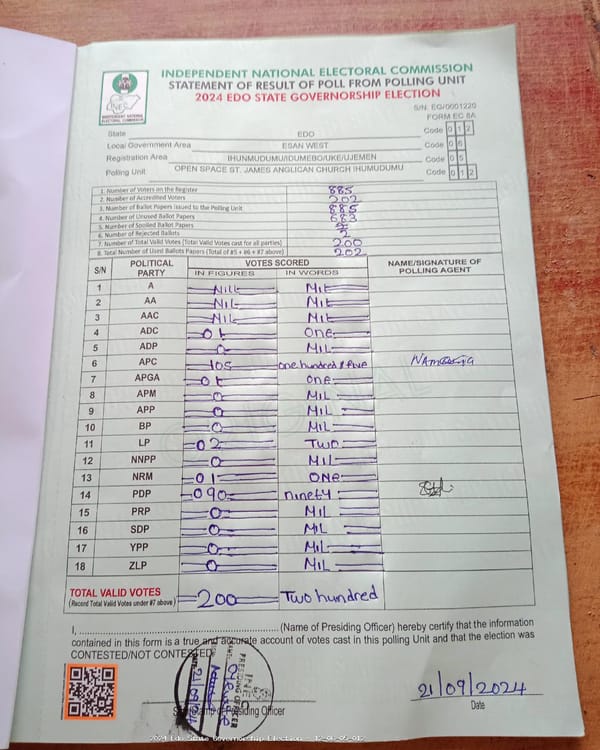 INDEPENDENT NATIONAL ELECTORAL COMMISSION
STATEMENT OF RESULT OF POLL FROM POLLING UNIT
2024 EDO STATE GOVERNORSHIP ELECTION
INEC
INDEPENDENT NATIONAL ELECTORAL COMMISSION
S/N: EG/0001220
FORM EC 8A
State EDO Code 0 1 2
Local Government Area ESAN WEST Code 0 6
Registration Area IHUNMUDUMU/IDUMEBO/UKE/UJEMEN Code 0 5
Polling Unit OPEN SPACE ST. JAMES ANGLICAN CHURCH IHUMUDUMU Code 0 1 2
1. Number of Voters on the Register 885
2. Number of Accredited Voters 202
3. Number of Ballot Papers Issued to the Polling Unit 885
4. Number of Unused Ballot Papers 683
5. Number of Spoiled Ballot Papers
6. Number of Rejected Ballots 2
7. Number of Total Valid Votes (Total Valid Votes cast for all parties) 200
8. Total Number of Used Ballots Papers (Total of #5 + #6 + #7 above) 202
S/N POLITICAL PARTY VOTES SCORED NAME/SIGNATURE OF POLLING AGENT
IN FIGURES IN WORDS
1 A NIL NIL
2 AA NIL NIL
3 AAC NIL NIL
4 ADC 01 One
5 ADP 0 NIL
6 APC 105 one hundred & five
7 APGA 01 one
8 APM 0 NIL
9 APP 0 NIL
10 BP 0 NIL
11 LP 02 Two
12 NNPP 0 NIL
13 NRM 01 ONE
14 PDP 090 ninety
15 PRP 0 NIL
16 SDP 0 NIL
17 YPP 0 NIL
18 ZLP 0 NIL
TOTAL VALID VOTES 200 Two hundred
(Record Total Valid Votes under #7 above)
I, ............ (Name of Presiding Officer) hereby certify that the information
contained in this form is a true and accurate account of votes cast in this polling Unit and that the election was
CONTESTED/NOT CONTESTED.
PRESIDING OFFICER
21/09/24
21/09/2024
Signature of Presiding Officer Date
2024 Edo State Governorship Election - 12-06-05-012